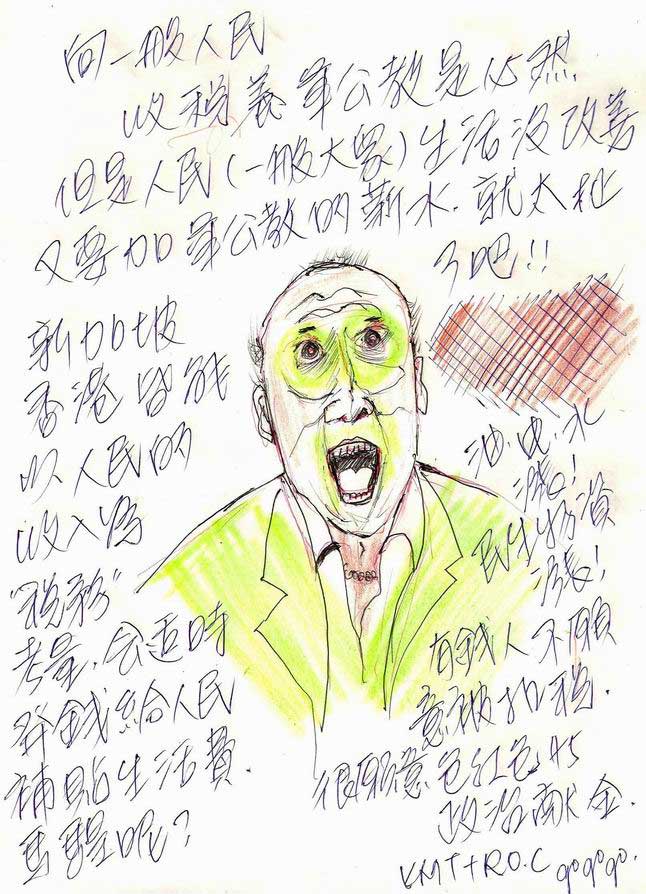 向一般人民
收稅養軍公教是必然.
但是人民(一般大眾)生活沒改善
又要加軍公教的薪水.就太扯
了吧!!
新加坡
香港皆能
以人民的
收入為
"稅務"
考量.會適時
發錢給人民
補貼生活費.
呢?
油.电.水
漲!
民生物資
漲!
有錢人不願
意被扣稅.
很願意包紅包
政治献金.
KMT+R.O.C gogogo.